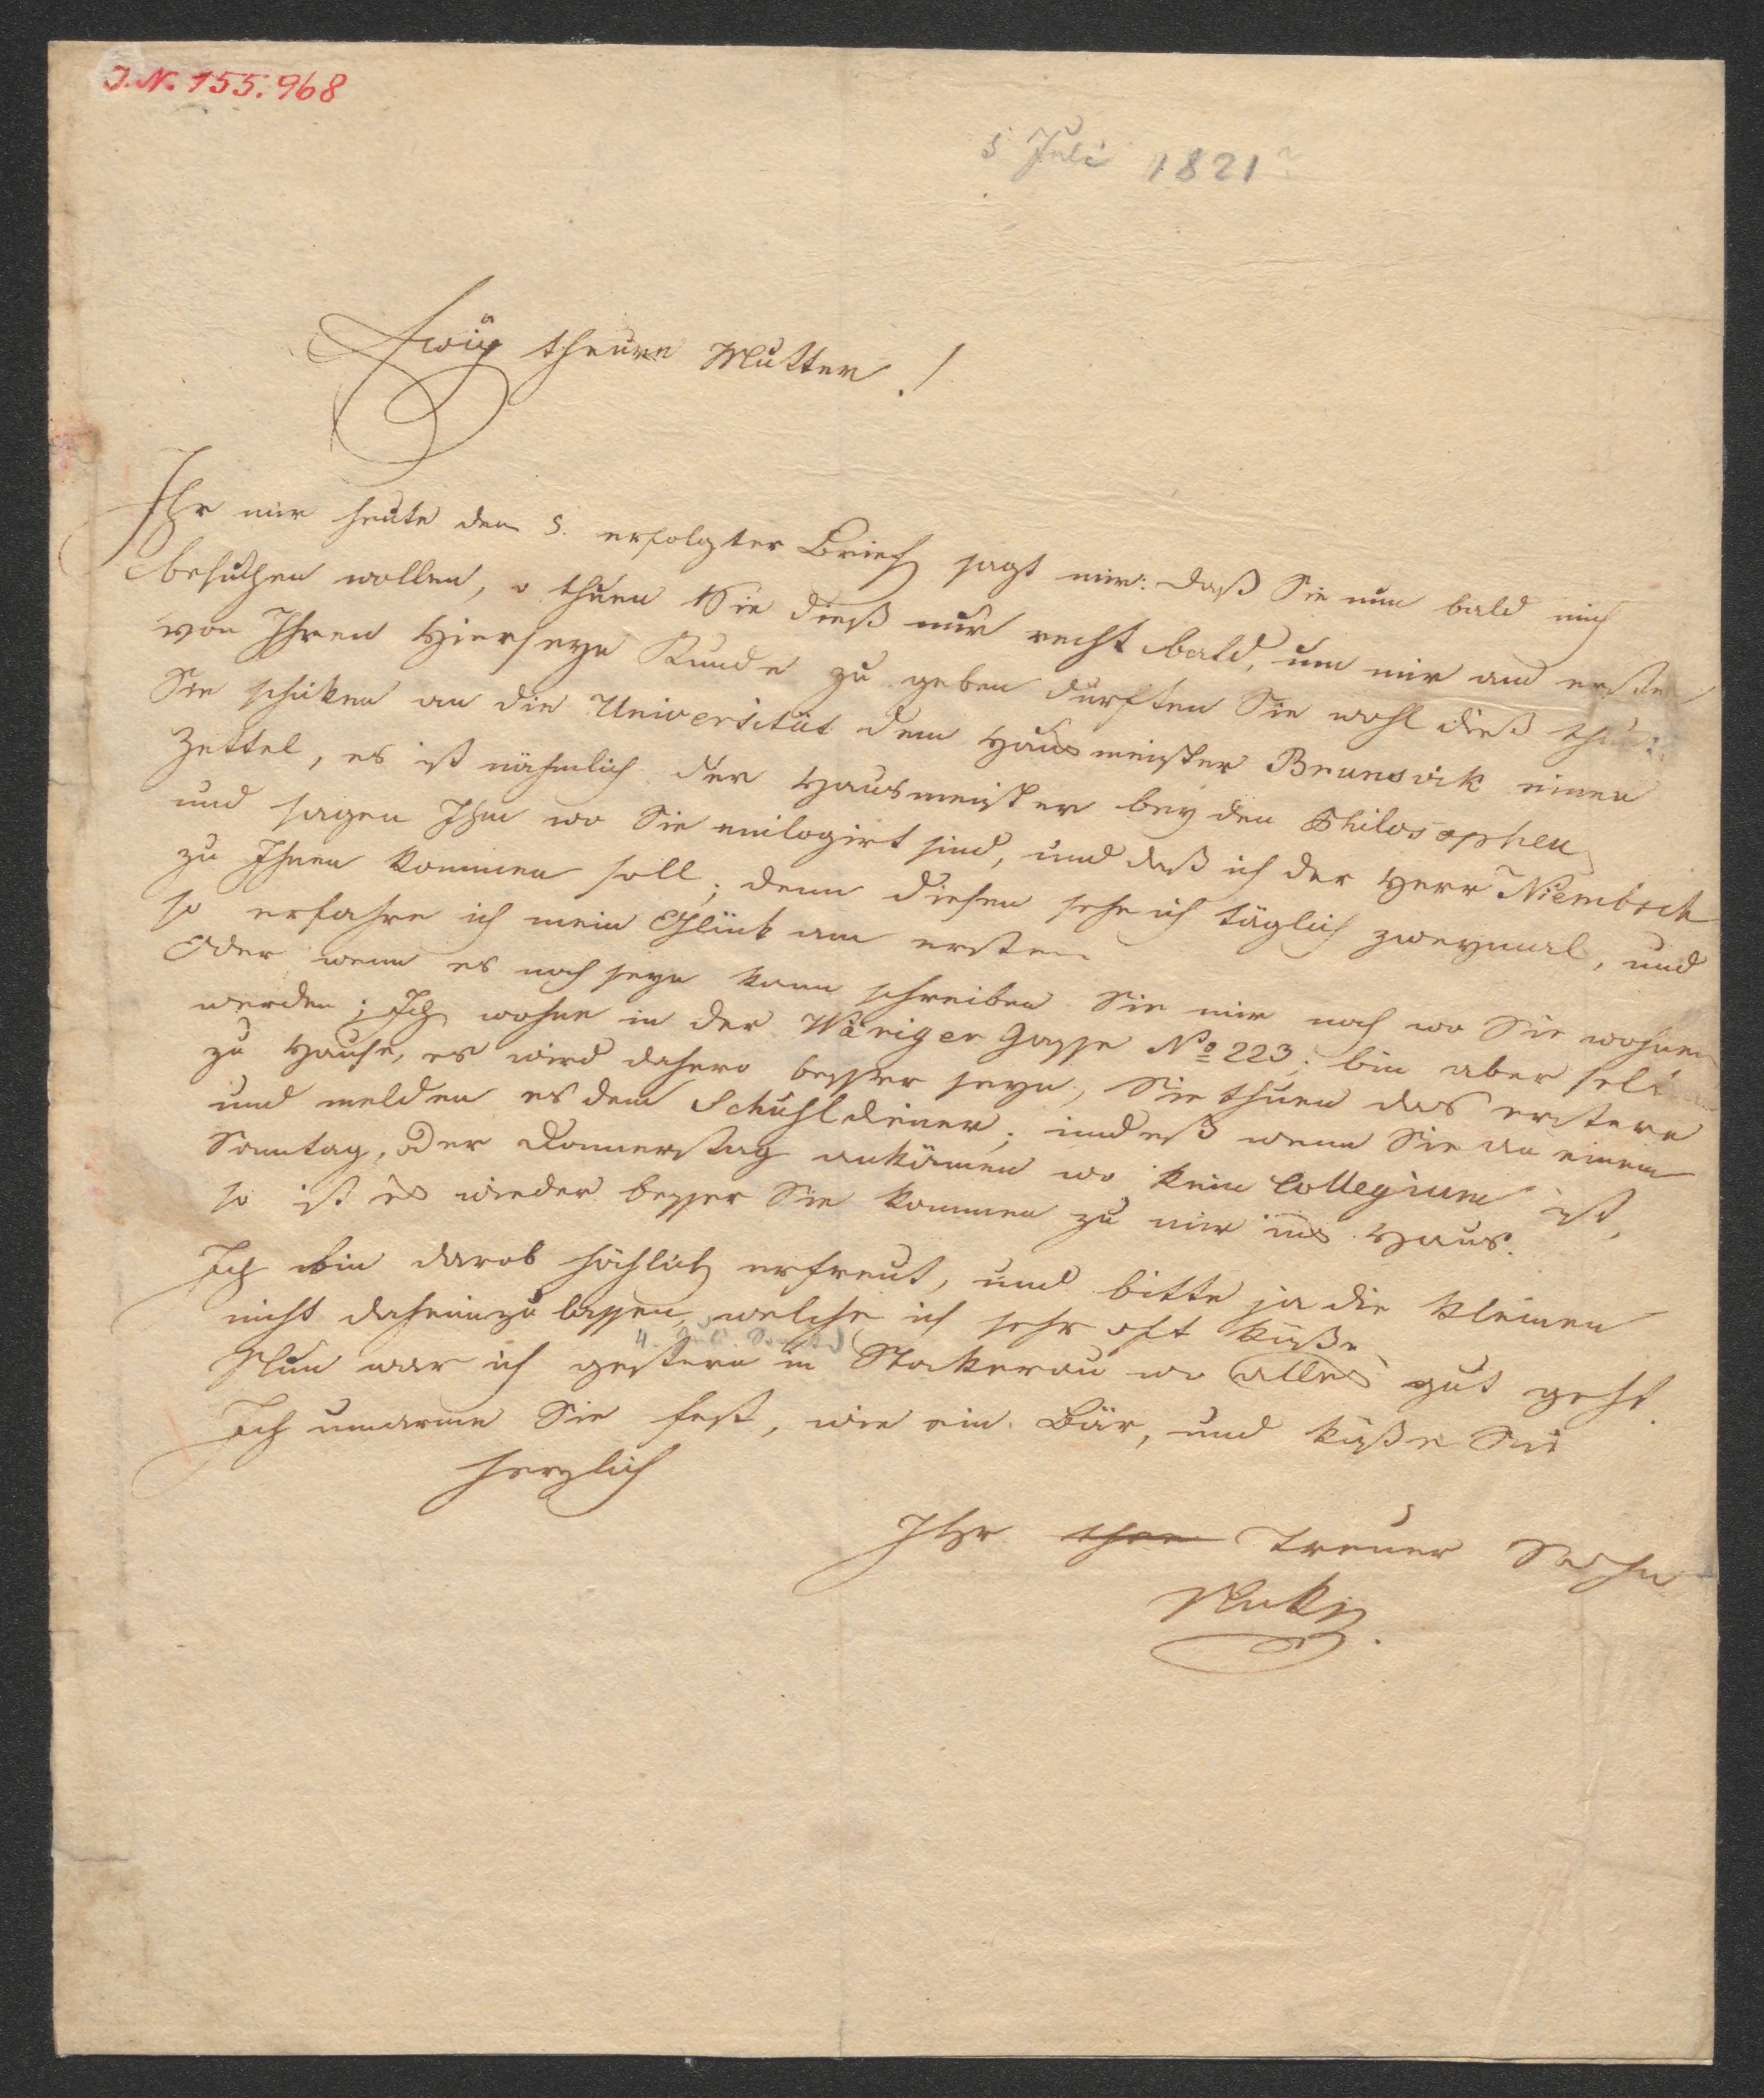 J. N. 155.968
5 Juli 1821?
Ewig theure Mutter!
Ihr mir heute den 5. erfolgter Brief sagt mir: daß Sie nun bald mich
besuchen wollen, o thuen Sie dieß nur recht bald, um mir am ersten
von Ihren Hierseyn Kunde zu geben durften Sie wohl dieß
Sie schiken an die Universität dem Hausmeister Brunsvik einen
Zettel, es ist nähmlich der Hausmeister bey den Philosophen
und sagen Ihm wo Sie einlogirt sind, und daß ich der Herr Niembsch
zu Ihnen kommen soll; denn diesen sehe ich täglich zweymal, und
so erfahre ich mein Glück am ersten
Oder wenn es noch seyn kann schreiben Sie mir noch wo Sie wohnen
werden; Ich wohne in der Wäriger Gasse No 223; bin aber
zu Hause, es wird dahero besser seyn, Sie thuen das erstere
und melden es dem Schuhldiener; indeß wenn Sie an einem
Sonntag, oder Donnerstag ankämen wo kein Collegium ist,
so ist es wieder besser Sie kommen zu mir ins Haus.
Ich bin darob höchlich erfreut, und bitte ja die Kleinen
nicht daheimzu lassen, welche ich sehr oft küße
4. Juli
Nun war ich gestern in Stokerau wo alles gut geht.
Ich umarme Sie fest, wie ein Bär, und küße Sie
herzlich
Ihr treuer Sohn
Niki